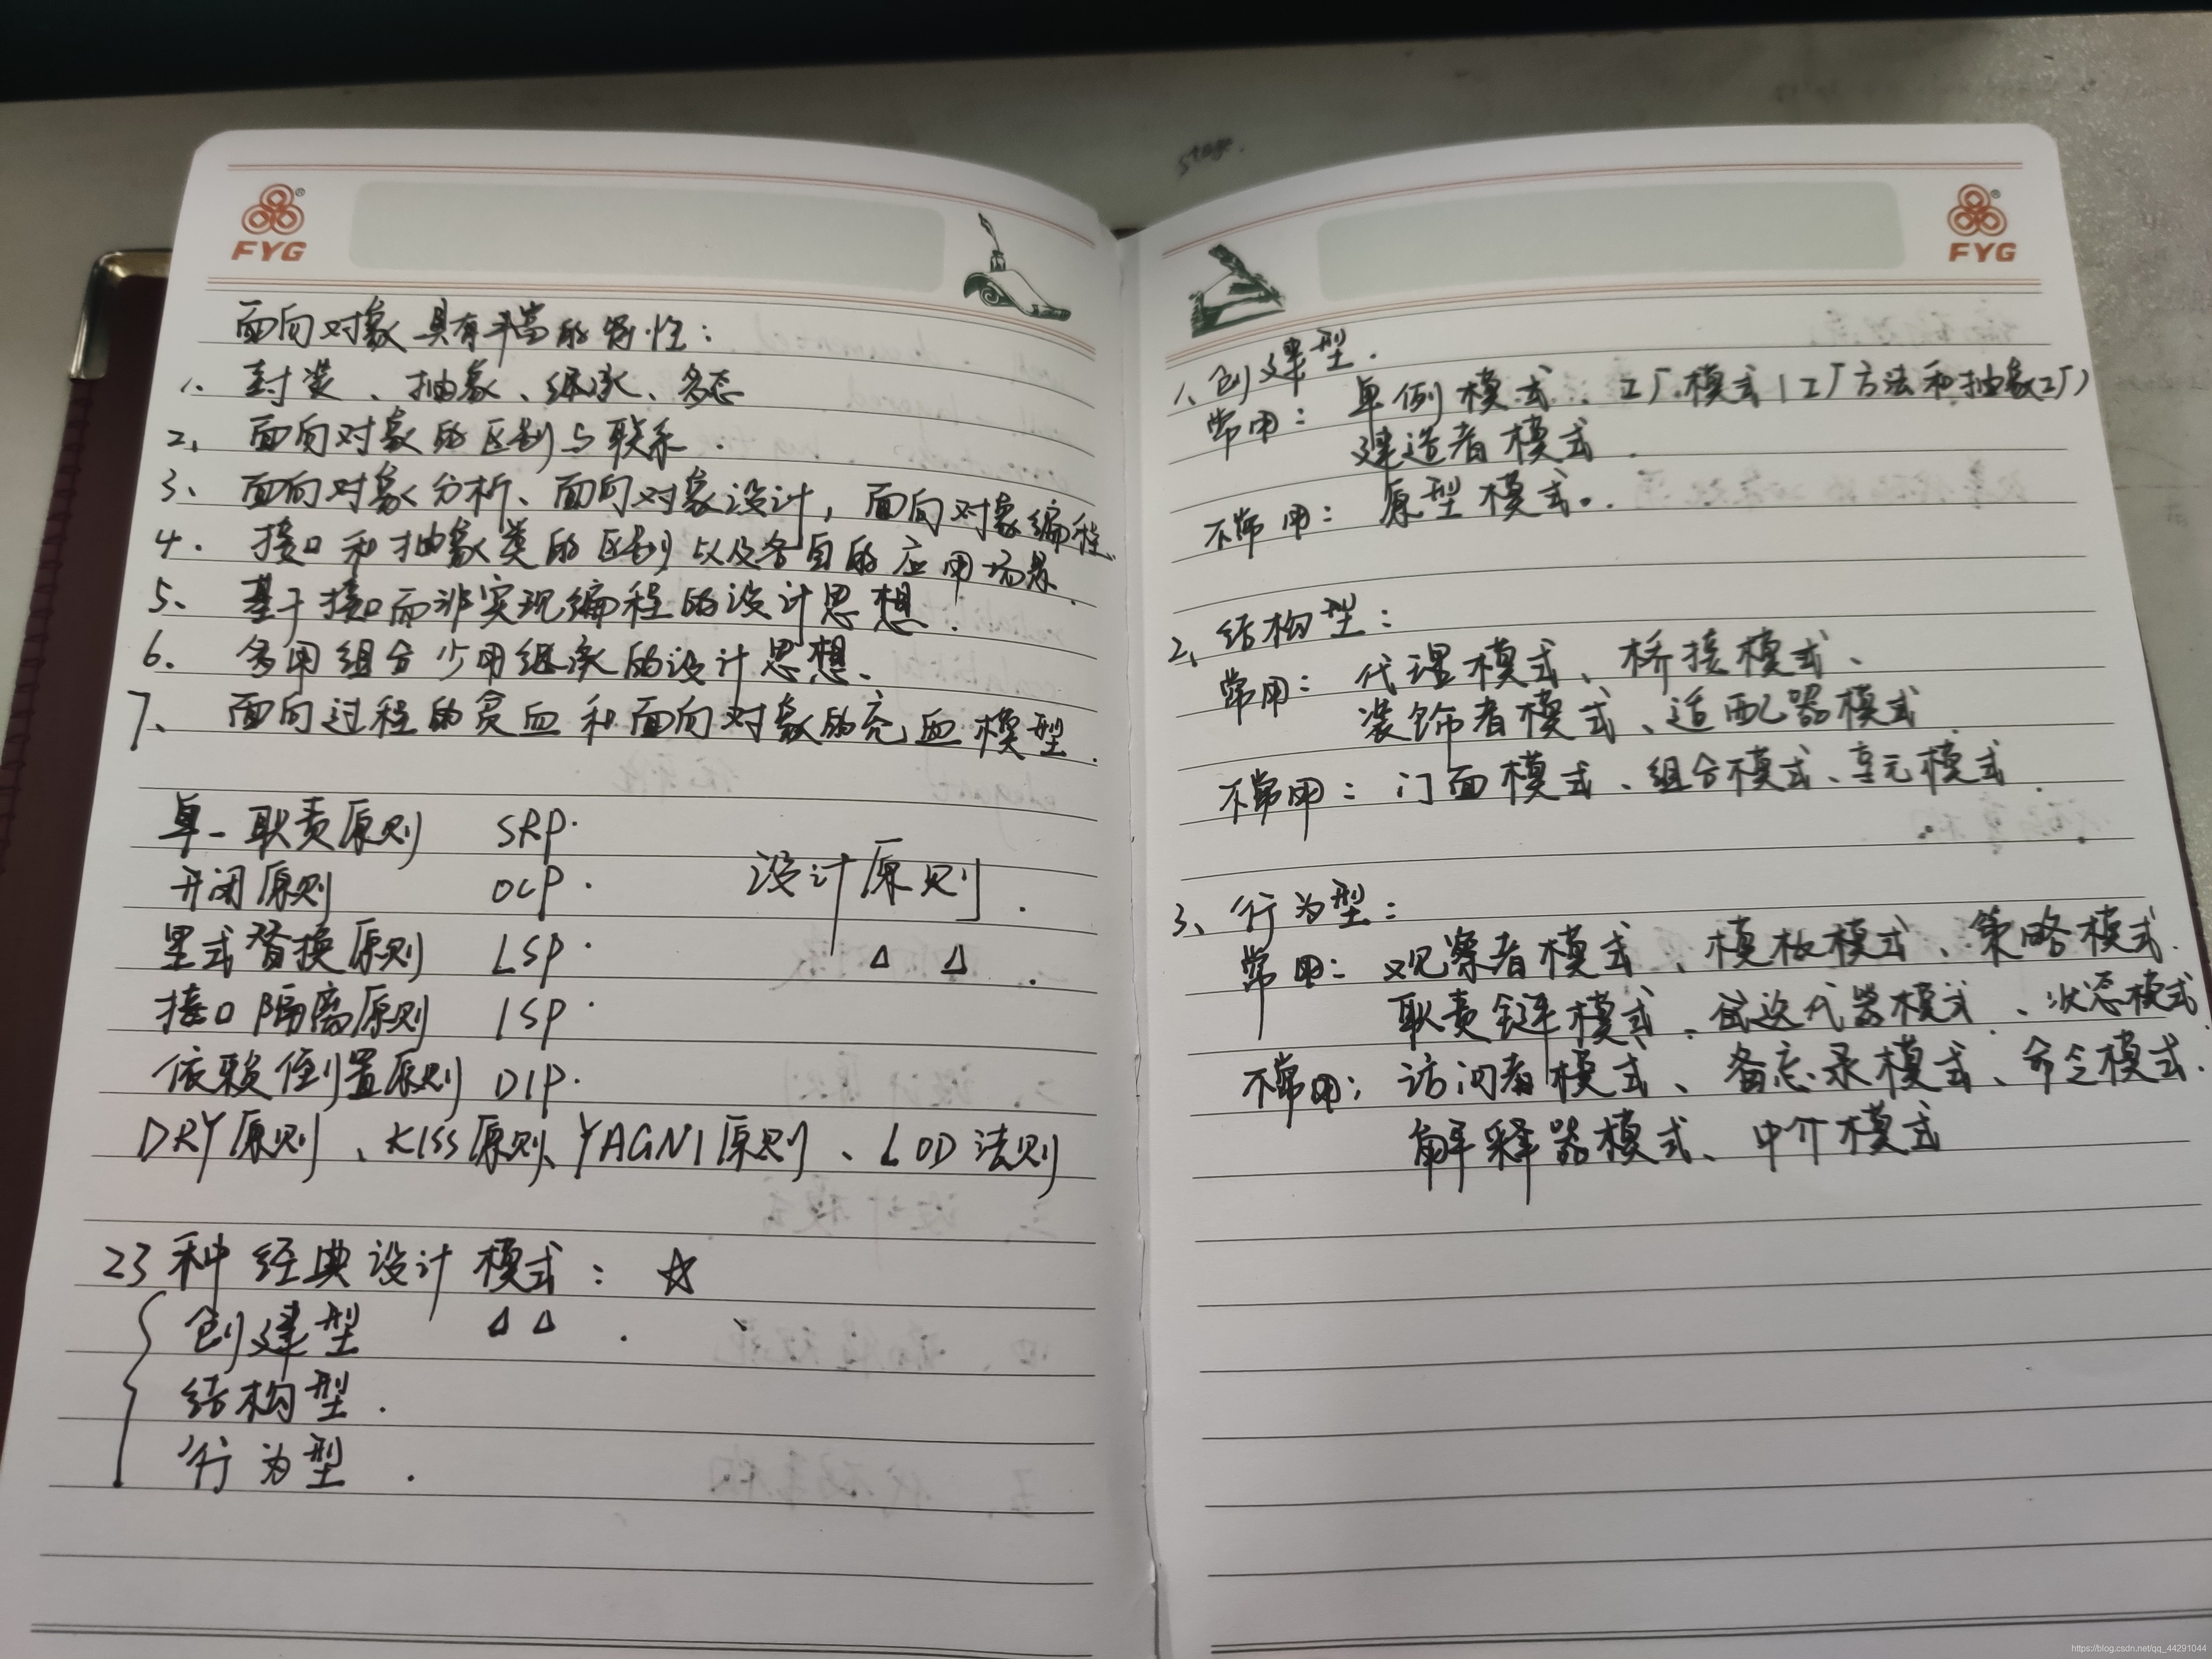 stage.
FYG
面向对象具有丰富的特性：
1、封装、抽象、继承、多态
2、面向对象的区别与联系．
3、面向对象分析、面向对象设计，面向对象编程．
4．接口和抽象类的区别以及各自的应用场景．
5、基于接口而非实现编程的设计思想．
6．多用组合少用继承的设计思想．
7、面向过程的贫血和面向对象的充血模型．
单一职责原则 SRP.
开闭原则 OCP. 设计原则．
里式替换原则 LSP.
接口隔离原则 ISP.
依赖倒置原则 DIP.
DRY原则、KISS原则、YAGNI原则、LOD法则
23种经典设计模式：☆
创建型
结构型．
行为型．
FYG
1、创建型．
常用：单例模式、工厂模式（工厂方法和抽象工厂）
建造者模式．
不常用：原型模式。
2、结构型：
常用：代理模式、桥接模式、
装饰者模式、适配器模式
不常用：门面模式、组合模式、享元模式．
3、行为型：
常用：观察者模式、模板模式、策略模式．
职责链模式、迭代器模式、状态模式．
不常用：访问者模式、备忘录模式、命令模式．
解释器模式、中介模式
https://blog.csdn.net/qq_44291044